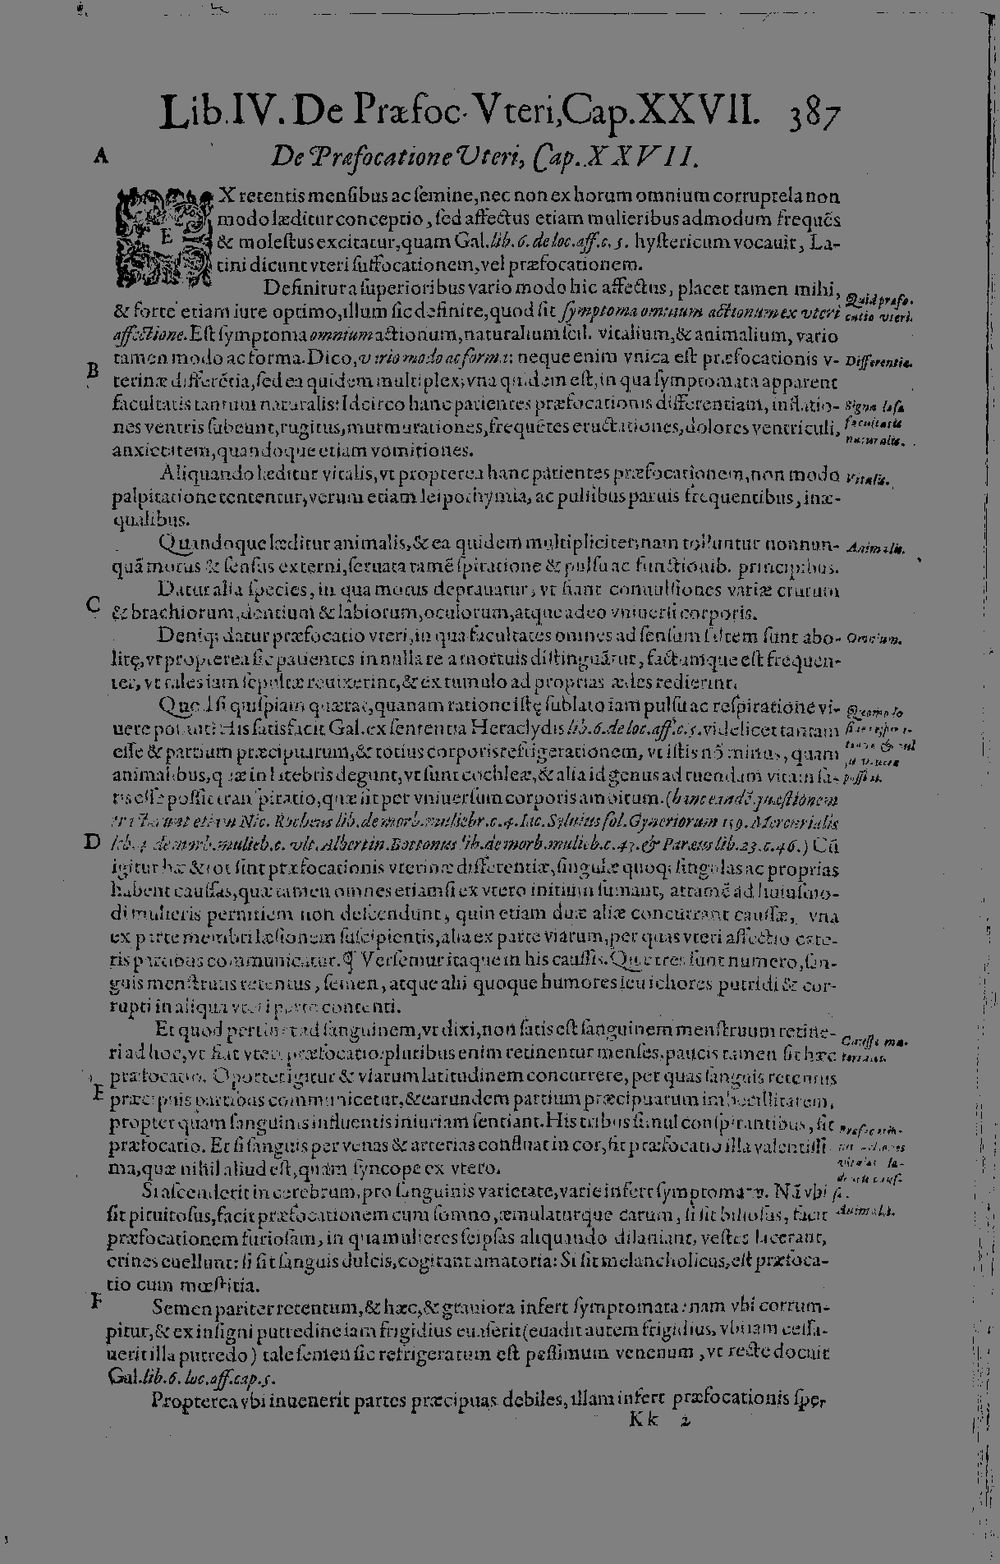 Lib. IV. De Præfoc. Vteri, Cap. XXVII. 387
A
De Præfocatione Vteri, Cap. XXVII.
EX retentis mensibus ac semine, nec non ex horum omnium corruptela non
modo læditur conceptio, sed affectus etiam mulieribus admodum frequẽs
& molestus excitatur, quam Gal. lib. 6. de loc. aff. c. 5. hystericum vocauit, La-
tini dicunt vteri suffocationem, vel præfocationem.
Definitur a superioribus vario modo hic affectus, placet tamen mihi,
Quid præfo-
& forte etiam iure optimo, illum sic definire, quod sit symptoma omnium actionum ex vteri
catio vteri.
affectione. Est symptoma omnium actionum, naturalium scil. vitalium, & animalium, vario
tamen modo ac forma. Dico, vario modo ac forma: neque enim vnica est præfocationis v-
Differentiæ.
B
terinæ differẽtia, sed ea quidem multiplex, vna quidem est, in qua symptomata apparent
facultatis tantum naturalis: Idcirco hanc patientes præfocationis differentiam, inflatio-
Signa læsæ
nes ventris subeunt, rugitus, murmurationes, frequẽtes eructationes, dolores ventriculi,
facultatis
anxietatem, quandoque etiam vomitiones.
naturalis.
Aliquando læditur vitalis, vt propterea hanc patientes præfocationem, non modo
Vitalis.
palpitatione tententur, verum etiam leipothymia, ac pulsibus paruis frequentibus, inæ-
qualibus.
Quandoque læditur animalis, & ea quidem multipliciter: nam tolluntur nonnun-
Animalis.
quã motus & sensus externi, seruata tamẽ spiratione & pulsu ac functionib. principibus.
Datur alia species, in qua motus deprauatur, vt fiant conuulsiones variæ crurum
C
& brachiorum, dentium & labiorum, oculorum, atque adeo vniuersi corporis.
Deniq; datur præfocatio vteri, in qua facultates omnes ad sensum saltem sunt abo-
Omnium.
litę, vt propterea sic patientes in nulla re a mortuis distinguãtur, factumque est frequen-
ter, vt tales iam sepultæ reuixerint, & ex tumulo ad proprias ædes redierint.
Quod si quispiam quærat, quanam ratione istę sublato iam pulsu ac respiratione vi-
Quomodo
uere possint: His satisfacit Gal. ex sententia Heraclydis lib. 6. de loc. aff. c. 5. videlicet tantam
esse & partium præcipuarum, & totius corporis refrigerationem, vt istis nõ minus, quam
animalibus, quæ in latebris degunt, vt sunt cochleæ, & alia id genus ad tuendam vitam sa-
possint.
tis esse possit transpiratio, quæ fit per vniuersum corporis ambitum. (hanc eandẽ quæstionem
etiam Nic. Rocheus lib. de morb. muliebr. c. 4. Iac. Syluius fol. Gynæciorum 159. Mercurialis
D
lib. 4. de morb. mulieb. c. vlt. Albertin. Bottonus lib. de morb. mulieb. c. 47. & Paræus lib. 23. c. 46.) Cũ
igitur hæ & tot sint præfocationis vterinæ differentiæ, singulæ quoq; singulas ac proprias
habent caussas, quæ tamen omnes etiamsi ex vtero initium sumant, attamẽ ad huiusmo-
di mulieris pernitiem non descendunt, quin etiam duæ aliæ concurrant caussæ, vna
ex parte membri læsionem suscipientis, alia ex parte viarum, per quas vteri affectio cæte-
ris partibus communicatur. ¶ Versemur itaque in his caussis. Quæ tres sunt numero, san-
guis menstruus retentus, semen, atque alii quoque humores seu ichores putridi & cor-
rupti in aliqua vteri parte contenti.
Et quod pertinet ad sanguinem, vt dixi, non satis est sanguinem menstruum retine-
Caussæ ma-
ri ad hoc, vt fiat vteri præfocatio: pluribus enim retinentur menses, paucis tamen fit hæc
præfocatio. Oportet igitur & viarum latitudinem concurrere, per quas sanguis retentus
E
præcipuis partibus communicetur, & earundem partium præcipuarum imbecillitatem,
propter quam sanguinis influentis iniuriam sentiant. His tribus simul conspirantibus, fit
præfocatio. Et si sanguis per venas & arterias confluat in cor, fit præfocatio illa valentissi-
ma, quæ nihil aliud est, quam syncope ex vtero.
Si ascenderit in cerebrum, pro sanguinis varietate, varie infert symptomata. Nã vbi
sit pituitosus, facit præfocationem cum somno, æmulaturque carum, si sit biliosus, facit
Animalis.
præfocationem furiosam, in qua mulieres seipsas aliquando dilaniant, vestes lacerant,
crines euellunt: si sit sanguis dulcis, cogitant amatoria: Si sit melancholicus, est præfoca-
tio cum mœstitia.
F
Semen pariter retentum, & hæc, & grauiora infert symptomata: nam vbi corrum-
pitur, & ex insigni putredine iam frigidius euaserit (euadit autem frigidius, vbi iam cessa-
uerit illa putredo) tale semen sic refrigeratum est pessimum venenum, vt recte docuit
Gal. lib. 6. loc. aff. cap. 5.
Propterea vbi inuenerit partes præcipuas debiles, illam infert præfocationis spe-
Kk 2